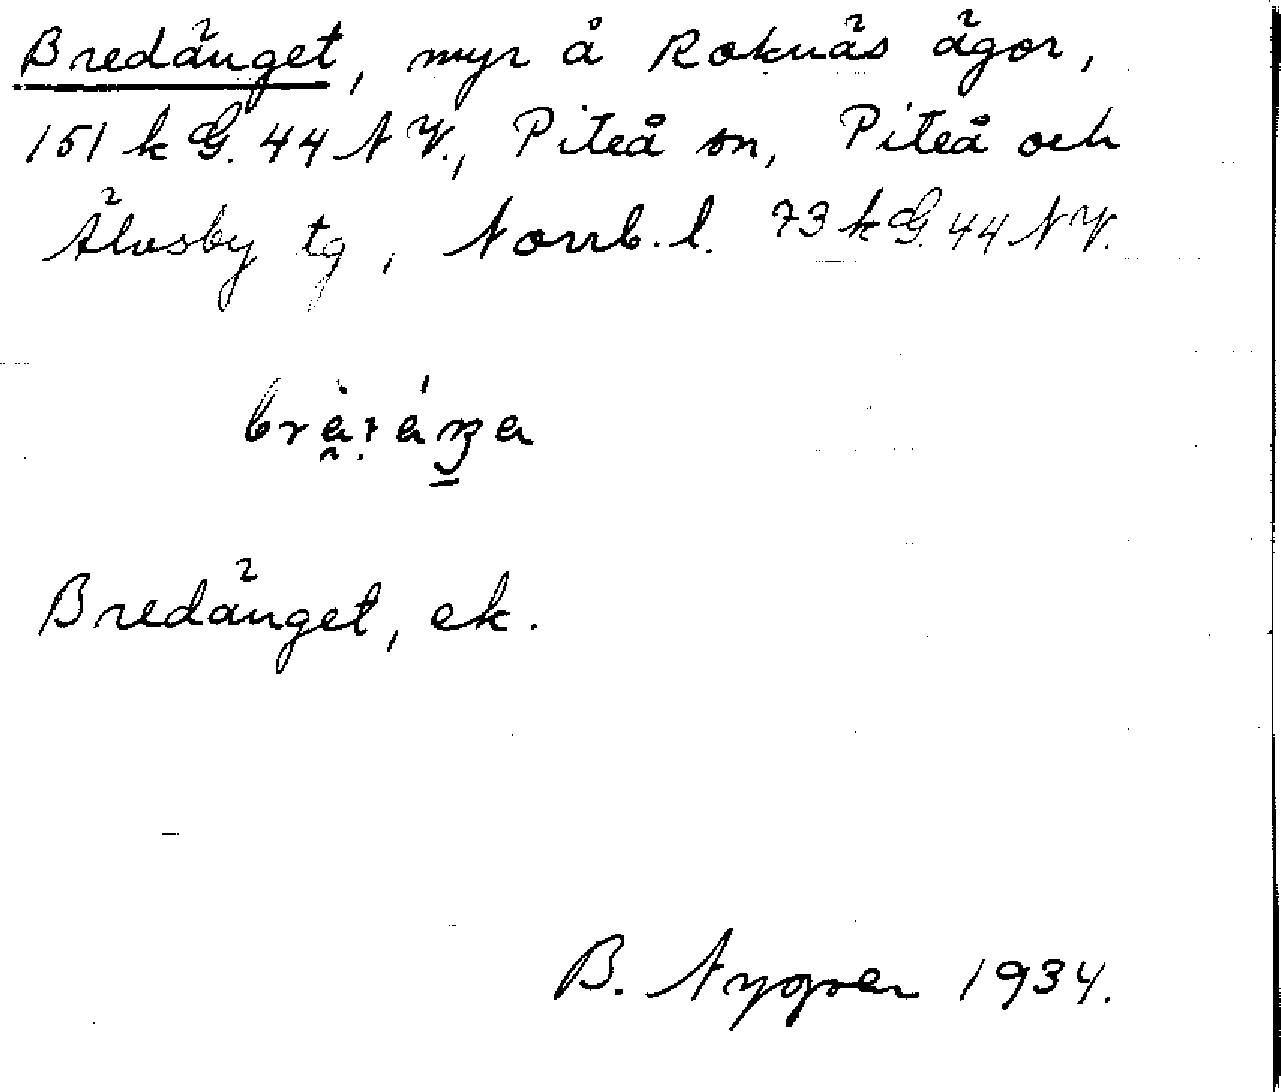 Bredänget, myr å Roknäs ägor,
151 k G. 44 N V., Piteå sn, Piteå och
Älvsby tg, Norrb. l. 73 k G. 44 N V.
Bredänget, ek.
B. Nygren 1934.